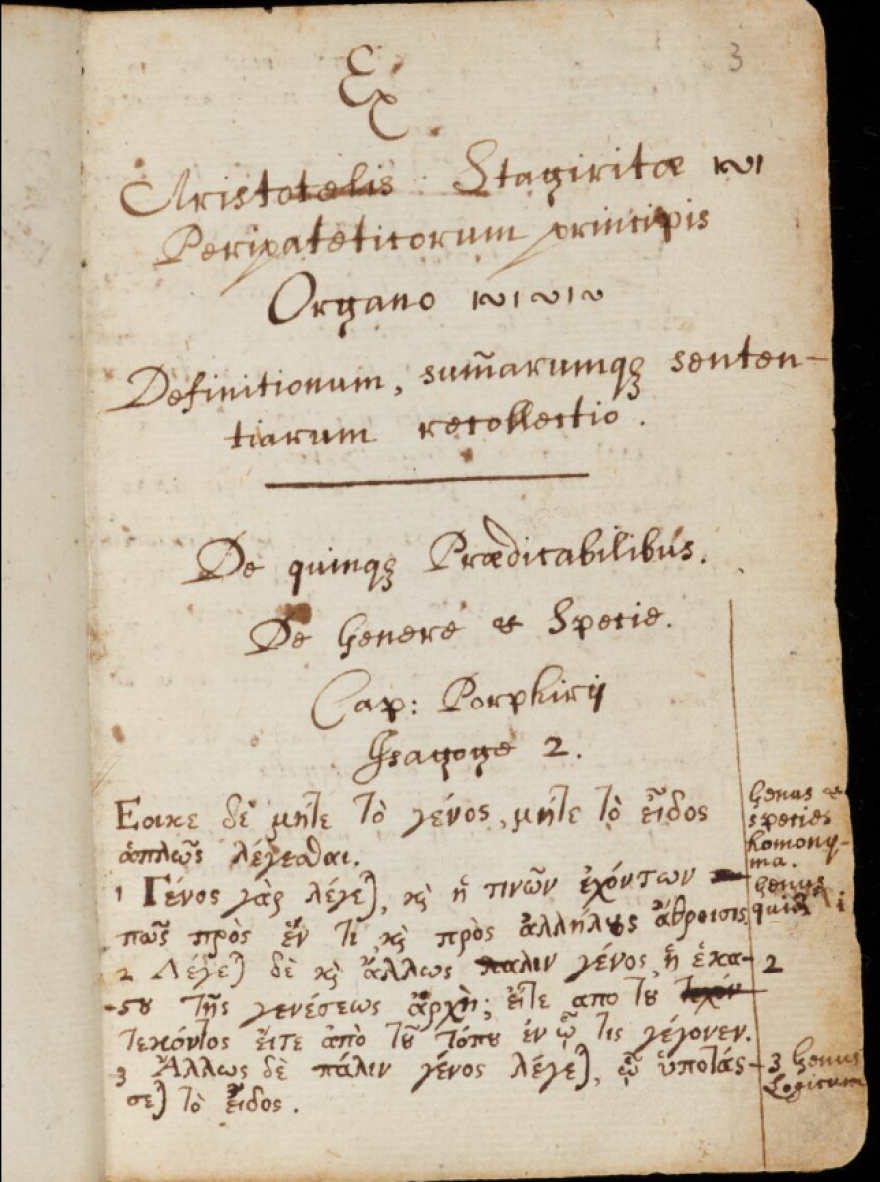 3
Ex
Aristotelis Stagiritæ
Peripateticorum principis
Organo
Definitionum, sum̃arumqꝫ senten-
tiarum recollectio.
De quinqꝫ Prædicabilibus.
De Genere & Specie.
Cap: Porphirij
Isagoge 2.
Εοικε δὲ μήτε τὸ γένος, μήτε τὸ εἶδος
ἁπλῶς λέγεσθαι.
1 Γένος γὰρ λέγε), κὶ ἡ τινῶν ἐχόντων
πως πρὸς ἕν τι κὶ πρὸς ἀλλήλȣς ἄθροισις
2 Λέγε) δὲ κὶ ἄλλως παλιν γένος ἡ ἑκα-
-ϛȣ τῆς γενέσεως ἀρχὴ; εἴτε απο τȣ
τεκόντος εἴτε ἀπὸ τȣ͂ τόπȣ ἐν ᾧ τις γέγονεν.
3 Ἄλλως δὲ πάλιν γένος λέγε), ᾧ ὑποτάσ-
σε) τὸ εἶδος.
Genus &
species
homony-
ma.
Genus
quid 1
2
3 Genus
Logicum